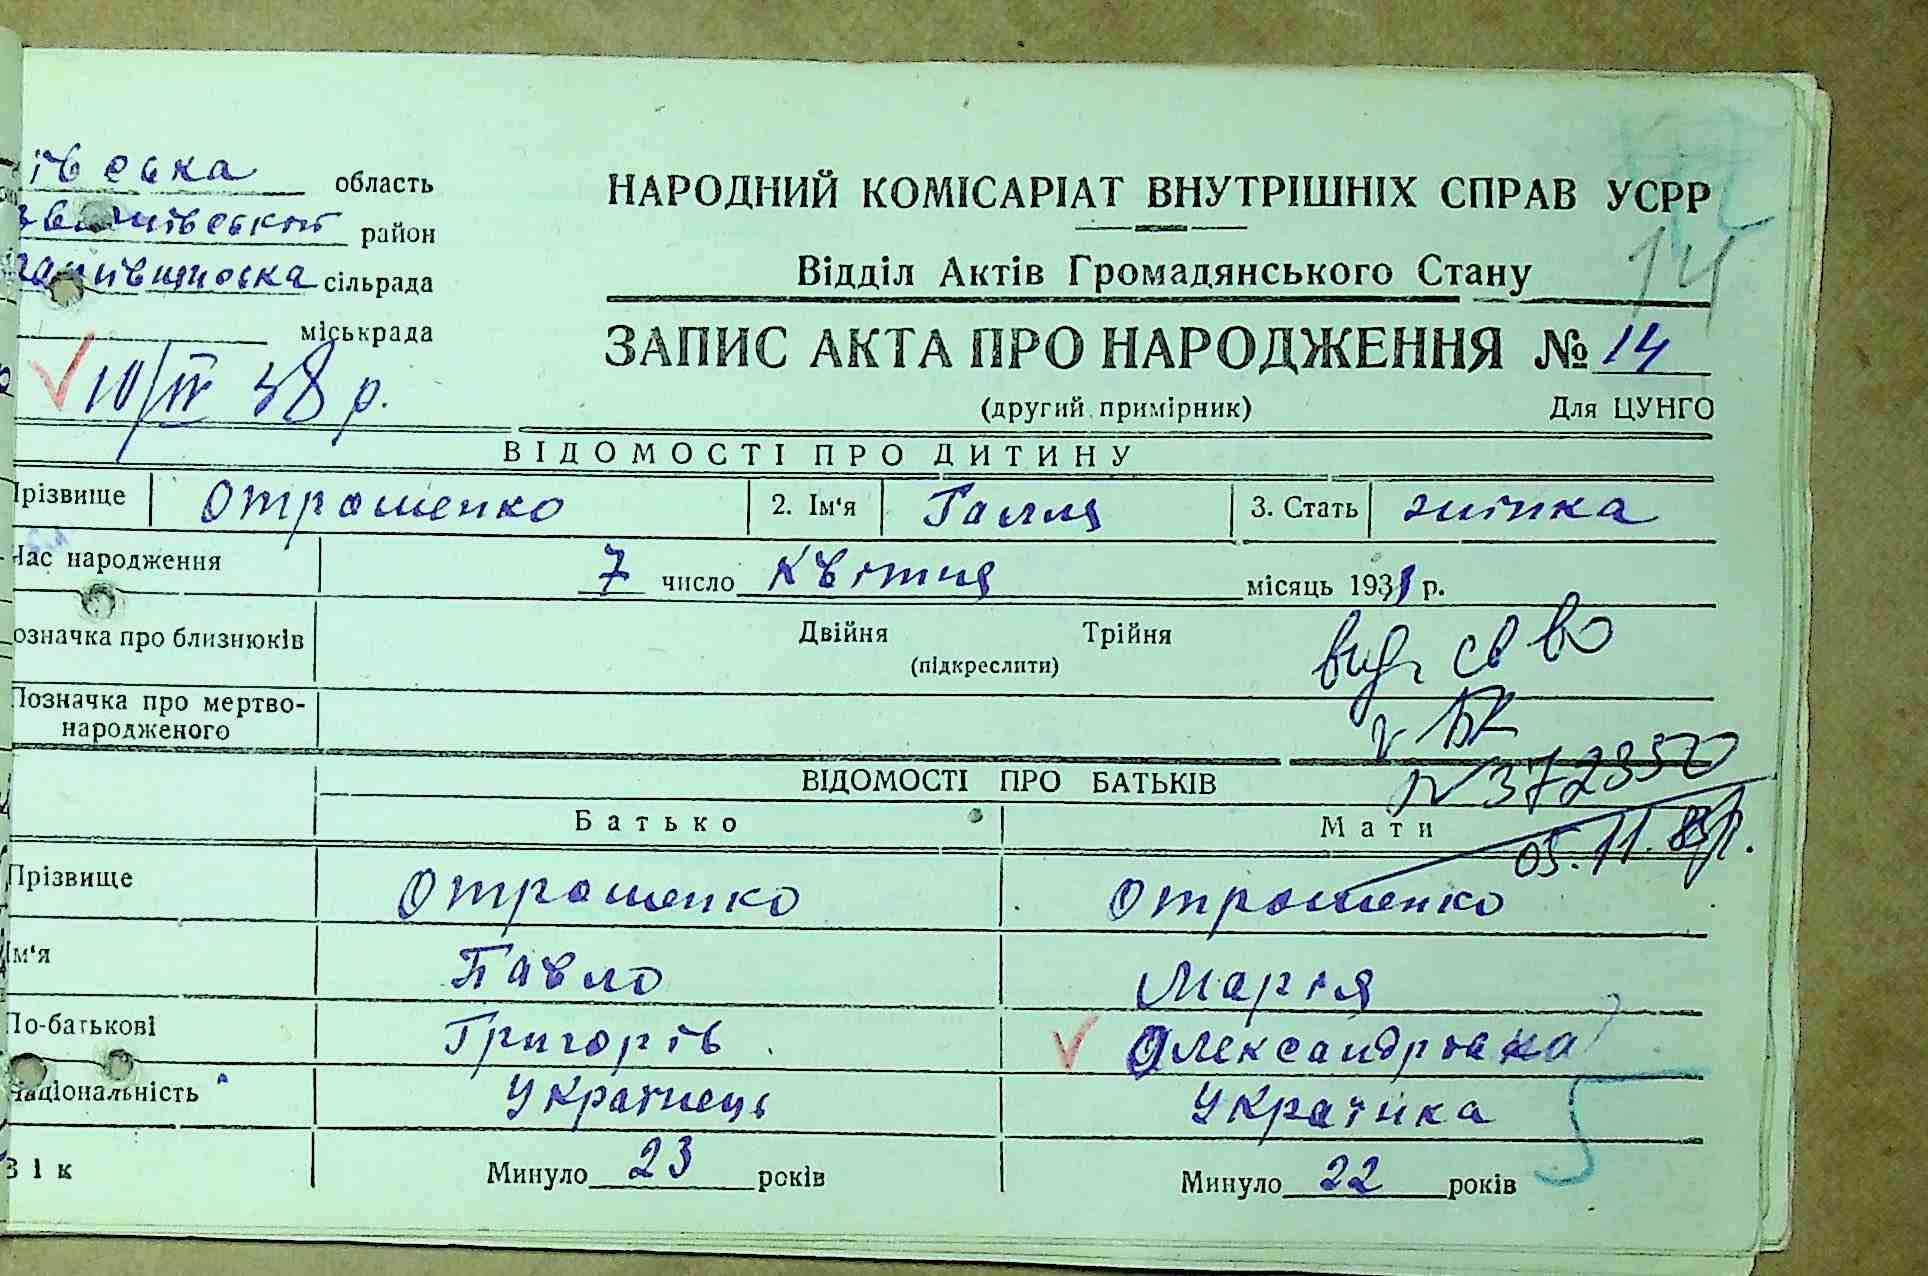 івська область
район
сільрада
міськрада
10/IV 38 р.
НАРОДНИЙ КОМІСАРІАТ ВНУТРІШНІХ СПРАВ УСРР
Відділ Актів Громадянського Стану
14
ЗАПИС АКТА ПРО НАРОДЖЕННЯ № 14
(другий примірник) Для ЦУНГО
ВІДОМОСТІ ПРО ДИТИНУ
Прізвище Отрошенко 2. Ім'я Галля 3. Стать жінка
Час народження 7 число Квітня місяць 1938 р.
означка про близнюків Двійня Трійня
(підкреслити)
вид. св во
Позначка про мертво-
народженого
V БК
N 372350
05.11.83р.
ВІДОМОСТІ ПРО БАТЬКІВ
Батько Мати
Прізвище Отрошенко Отрошенко
Ім'я Павло Марія
По-батькові Григорів Олександрівна
Національність Українець Українка
Вік Минуло 23 років Минуло 22 років